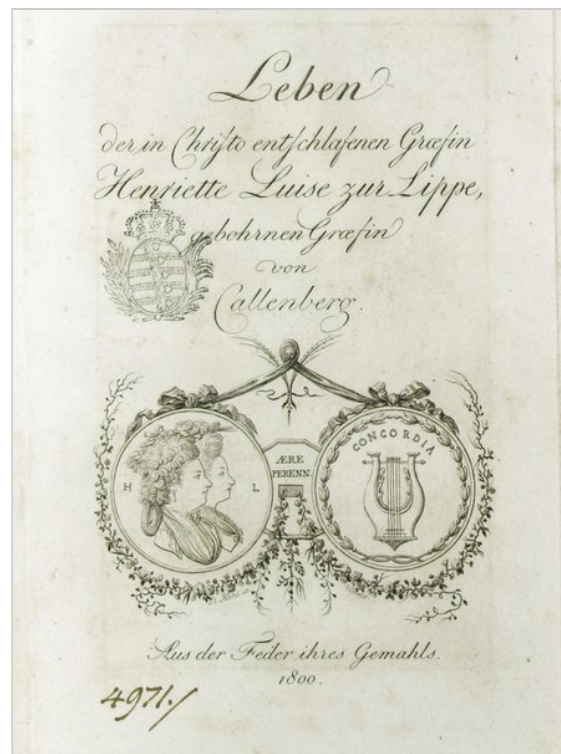 Leben
der in Chriſto entſchlafenen Græfin
Henriette Luise zur Lippe,
gebohrnen Græfin
von
Callenberg.
ÆRE
PERENN.
H L
CONCORDIA
Aus der Feder ihres Gemahls.
1800.
4971./